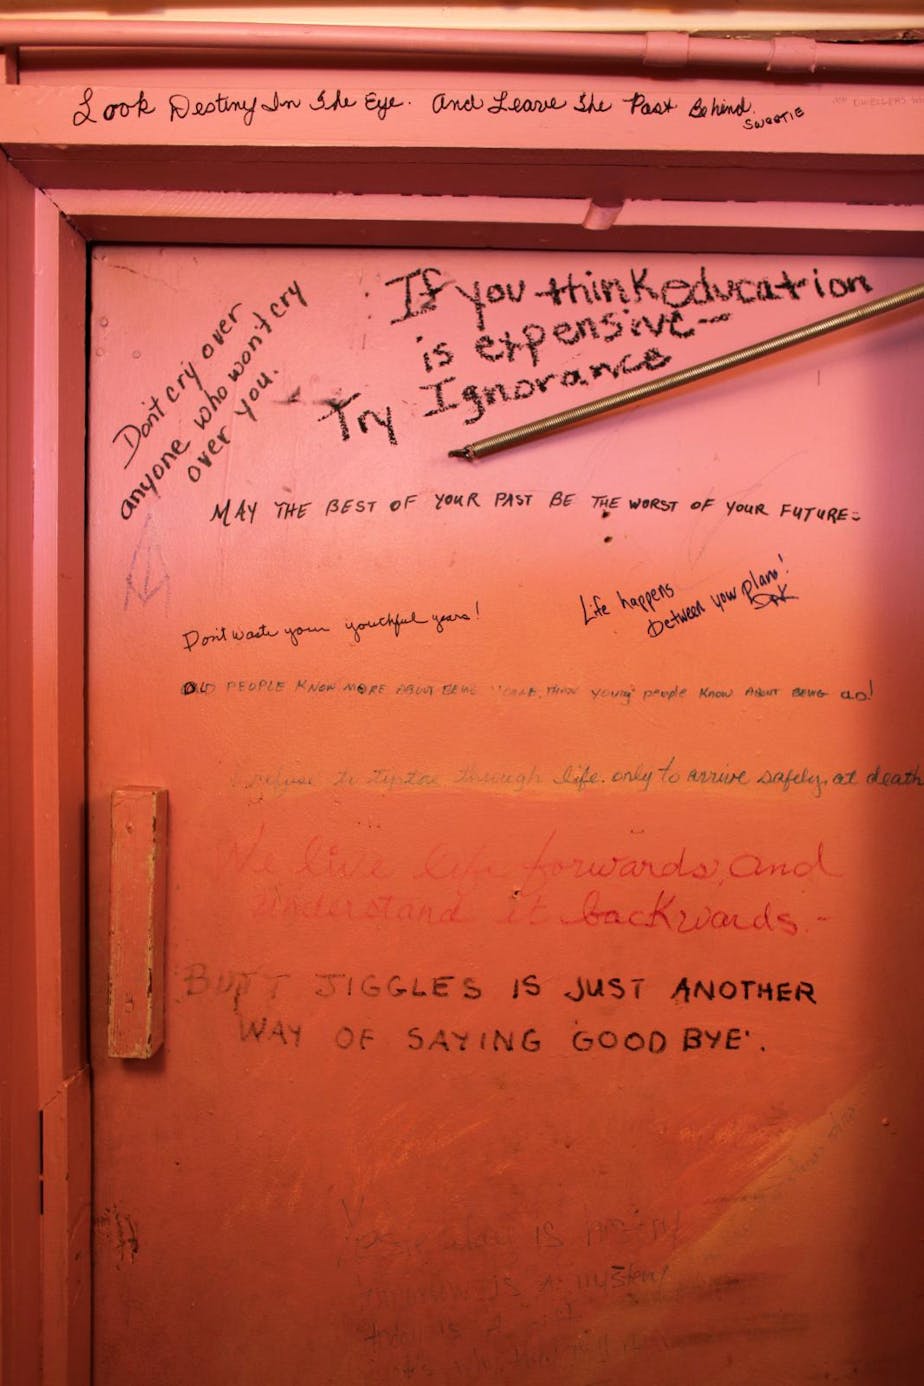 Look Destiny In The Eye. And Leave The Past Behind.
SWEETIE
Don't cry over
anyone who won't cry
over you.
If you think education
is expensive--
Try Ignorance
MAY THE BEST OF YOUR PAST BE THE WORST OF YOUR FUTURE-
Life happens
between your plans!
Don't waste your youthful years!
OLD PEOPLE KNOW MORE ABOUT BEING YOUNG, THAN young people KNOW ABOUT BEING OLD!
I refuse to tiptoe through life. only to arrive safely, at death
We live life forwards, and
understand it backwards.-
BUTT JIGGLES IS JUST ANOTHER
WAY OF SAYING 'GOOD BYE'.
is history
is a mystery
today is a